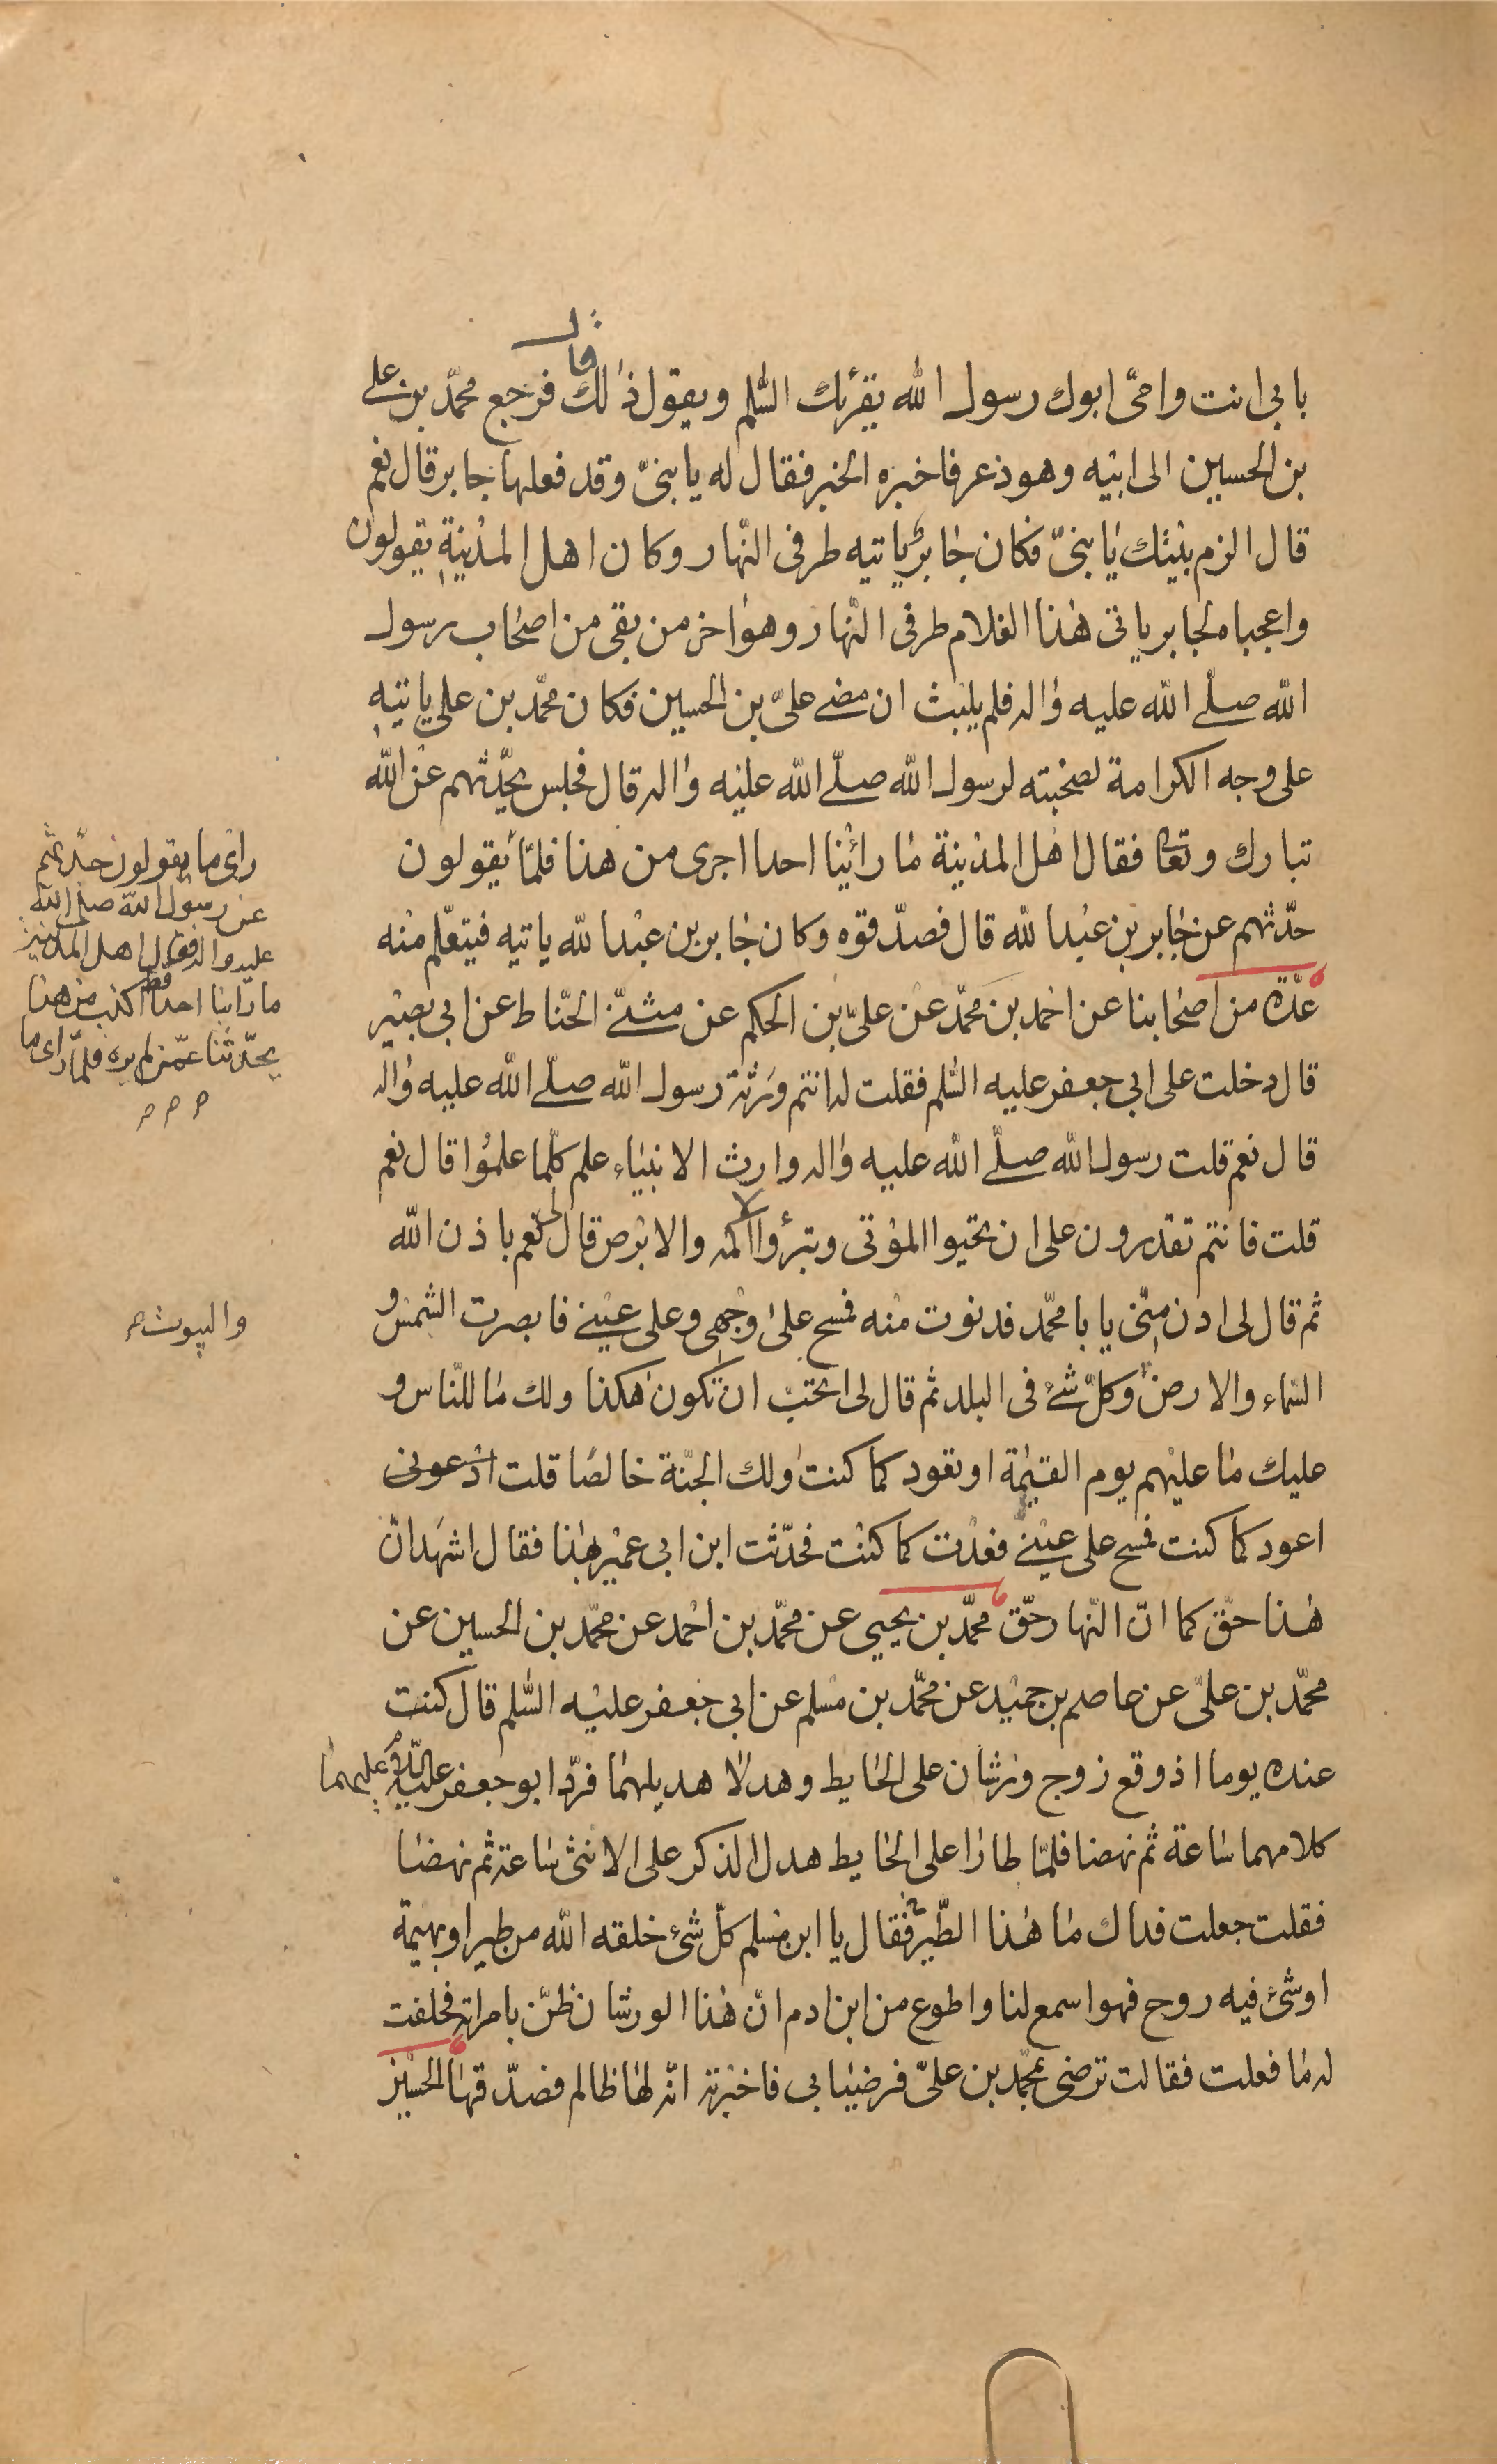 قال
بابى انت وامى ابوك رسول الله يقرئك السلم ويقول ذلك فرجع محمد بن على
بن الحسين الى ابيه وهو ذعر فاخبره الخبر فقال له يا بنى وقد فعلها جابر قال نعم
قال الزم بيتك يا بنى فكان جابر ياتيه طرفى النهار وكان اهل المدينة يقولون
واعجباه لجابر ياتى هذا الغلام طرفى النهار وهو اخر من بقى من اصحاب رسول
الله صلى الله عليه واله فلم يلبث ان مضى على بن الحسين فكان محمد بن على ياتيه
على وجه الكرامة لصحبته لرسول الله صلى الله عليه واله قال فجلس يحدثهم عن الله
تبارك وتعا فقال اهل المدينة ما راينا احدا اجرى من هذا فلما يقولون
حدثهم عن جابر بن عبد الله قال فصدقوه وكان جابر بن عبد الله ياتيه فيتعلم منه
عدة من اصحابنا عن احمد بن محمد عن على بن الحكم عن مثنى الحناط عن ابى بصير
قال دخلت على ابى جعفر عليه السلم فقلت له انتم ورثة رسول الله صلى الله عليه واله
قال نعم قلت رسول الله صلى الله عليه واله وارث الانبياء علم كلما علموا قال نعم
قلت فانتم تقدرون على ان تحيوا الموتى وتبرؤا الاكمه والابرص قال لى نعم باذن الله
ثم قال لى ادن منى يا با محمد فدنوت منه فمسح على وجهى وعلى عينى فابصرت الشمس و
السماء والارض وكل شئ فى البلد ثم قال لى اتحب ان تكون هكذا ولك ما للناس و
عليك ما عليهم يوم القيمة او تعود كما كنت ولك الجنة خالصا قلت ادعونى
اعود كما كنت فمسح على عينى فعدت كما كنت فحدثت ابن ابى عمير بهذا فقال اشهد ان
هذا حق كما ان النهار حق محمد بن يحيى عن محمد بن احمد عن محمد بن الحسين عن
محمد بن على عن عاصم بن حميد عن محمد بن مسلم عن ابى جعفر عليه السلم قال كنت
عنده يوما اذ وقع زوج ورشان على الحايط وهدلا هديلهما فرد ابو جعفر عليه السلم عليهما
كلامهما ساعة ثم نهضا فلما طارا على الحايط هدل الذكر على الانثى ساعة ثم نهضا
فقلت جعلت فداك ما هذا الطير فقال يا ابن مسلم كل شئ خلقه الله من طير او بهيمة
او شئ فيه روح فهو اسمع لنا واطوع من ابن ادم ان هذا الورشان ظن بامراته فحلفت
له ما فعلت فقالت ترضى بمحمد بن على فرضيا بى فاخبرته انه لها ظالم فصدقها الحسين
راى ما يقولون حدثهم
عن رسول الله صلى الله
عليه واله فقال اهل المدينة
ما راينا احدا قط اكذب من هذا
يحدثنا عمن لم يره فلما راى ما
والبيوت